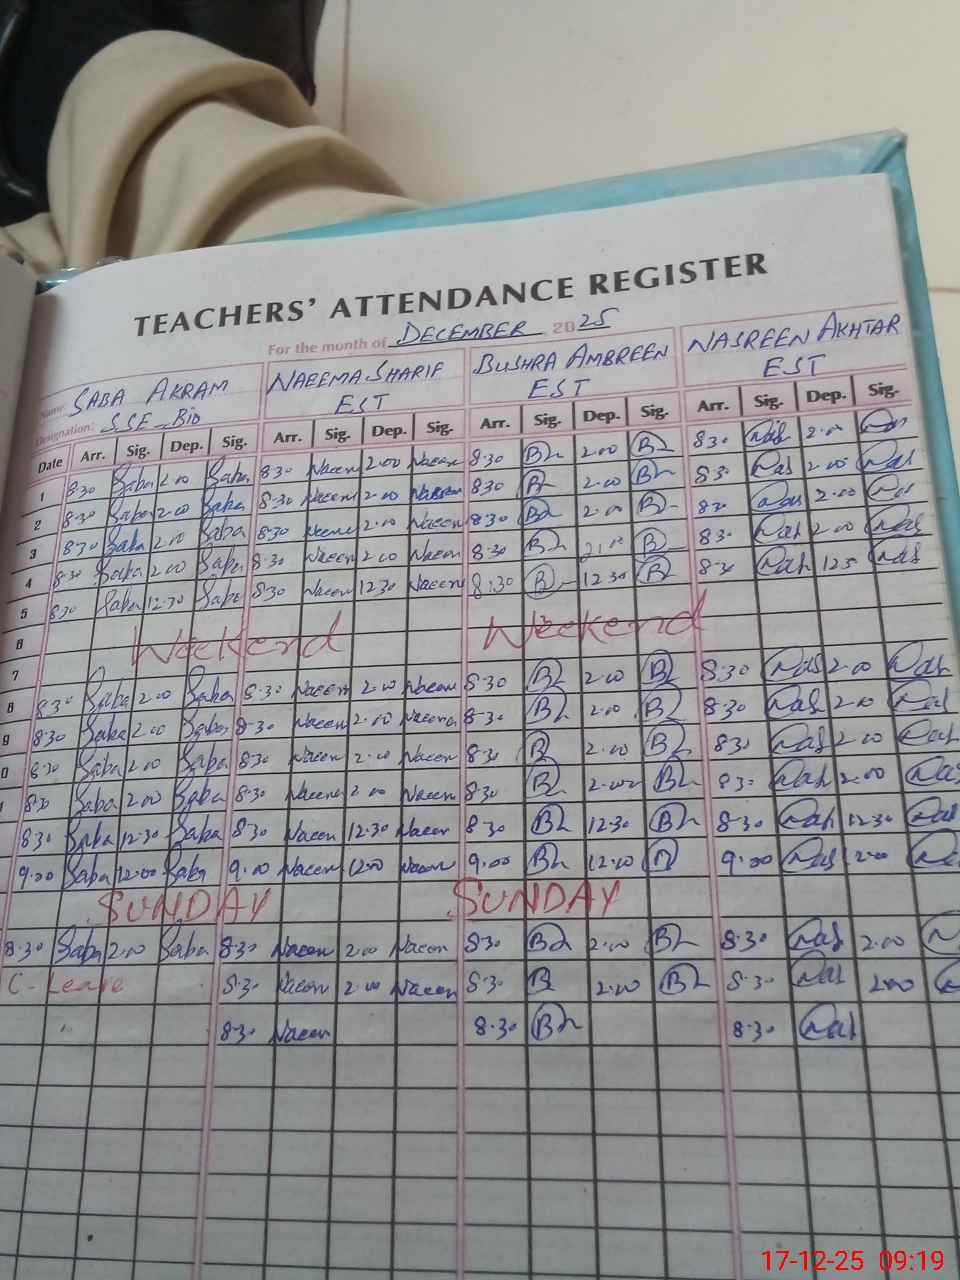 TEACHERS' ATTENDANCE REGISTER
For the month of DECEMBER 2025
Name: SABA AKRAM NAEEMA SHARIF BUSHRA AMBREEN NASREEN AKHTAR
Designation: SSE-Bio EST EST EST
Date Arr. Sig. Dep. Sig. Arr. Sig. Dep. Sig. Arr. Sig. Dep. Sig. Arr. Sig. Dep. Sig.
1 8:30 Saba 2:00 Saba 8:30 Naeem 2:00 Naeem 8:30 2:00 8:30 Nas 2:00 Nas
2 8:30 Saba 2:00 Saba 8:30 Naeem 2:00 8:30 2:00 8:30 Nas 2:00 Nas
3 8:30 Saba 2:00 Saba 8:30 2:00 Naeem 8:30 2:00 8:30 Nas 2:00 Nas
4 8:30 Saba 2:00 Saba 8:30 Naeem 2:00 Naeem 8:30 8:30 Nas 2:00 Nas
5 8:30 Saba 12:30 Saba 8:30 Naeem 12:30 Naeem 8:30 12:30 8:30 Nas Nas
6 Weekend Weekend
7
8 8:30 Saba 2:00 Saba 8:30 Naeem 2:00 Naeem 8:30 2:00 8:30 Nas 2:00 Nas
9 8:30 Saba 2:00 Saba 8:30 Naeem 2:00 Naeem 8:30 2:00 8:30 Nas 2:00 Nas
0 8:30 Saba 2:00 Saba 8:30 Naeem 2:00 Naeem 8:30 2:00 8:30 Nas 2:00 Nas
8:30 Saba 2:00 Saba 8:30 Naeem 2:00 Naeem 8:30 2:00 8:30 Nas 2:00 Nas
8:30 Saba 12:30 Saba 8:30 Naeem 12:30 Naeem 8:30 12:30 8:30 Nas 12:30 Nas
9:00 Saba 12:00 Saba 9:00 Naeem 12:00 Naeem 9:00 12:00 9:00 Nas 12:00
SUNDAY SUNDAY
8:30 Saba 2:00 Saba 8:30 Naeem 2:00 Naeem 8:30 2:00 8:30 Nas 2:00
C-Leave 8:30 Naeem 2:00 Naeem 8:30 2:00 8:30 Nas 2:00
8:30 Naeem 8:30 8:30 Nas
17-12-25 09:19